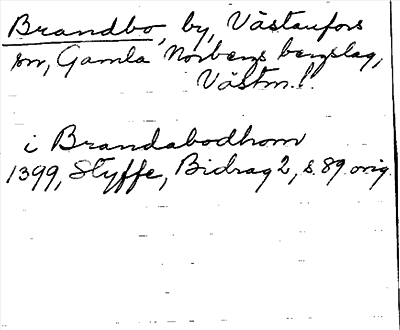 Brandbo, by, Västanfors
sn, Gamla Norbergs bergslag,
Västm.l.
i Brandabodhom
1399, Styffe, Bidrag 2, s. 89. orig.